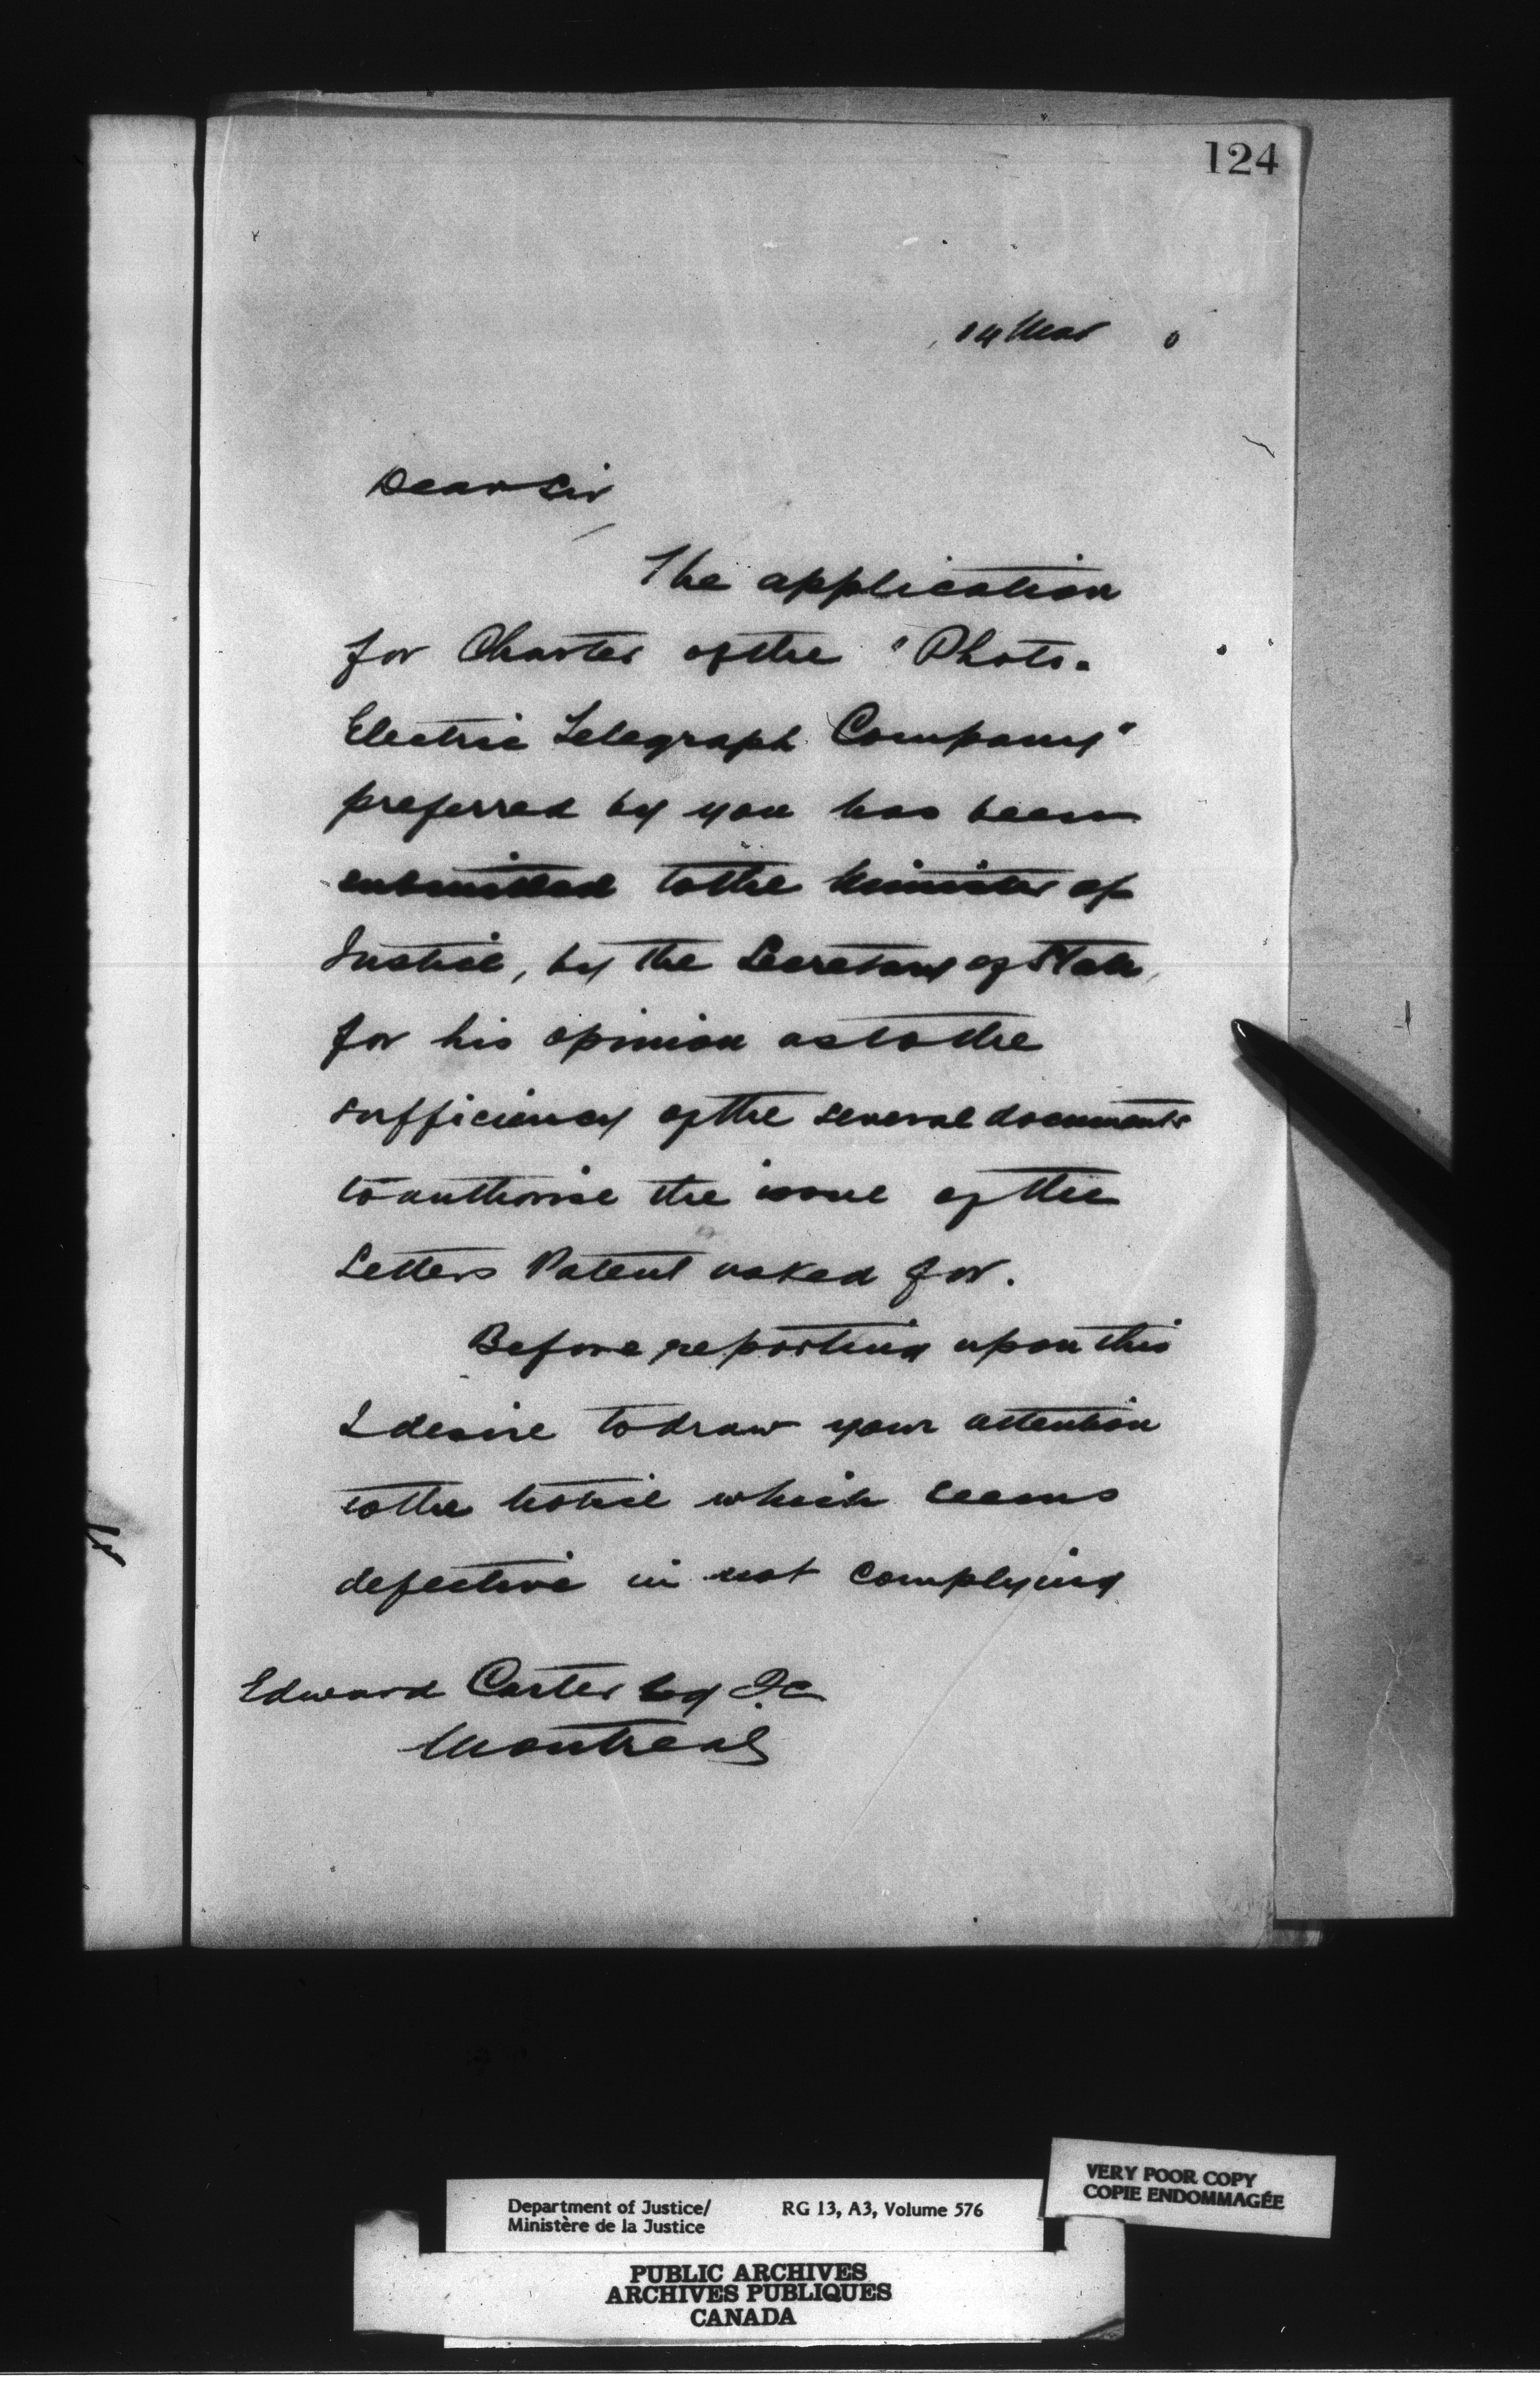 124
14 Mar 0
Dear Sir
The application
for Charter of the "Photo-
Electric Telegraph Company"
preferred by you has been
submitted to the Minister of
Justice, by the Secretary of State,
for his opinion as to the
sufficiency of the several documents
to authorise the issue of the
Letters Patent asked for.
Before reporting upon this
I desire to draw your attention
to the notice which seems
defective in not complying
Edward Carter Esq Q.C.
Montreal
VERY POOR COPY
COPIE ENDOMMAGÉE
Department of Justice/ RG 13, A3, Volume 576
Ministère de la Justice
PUBLIC ARCHIVES
ARCHIVES PUBLIQUES
CANADA